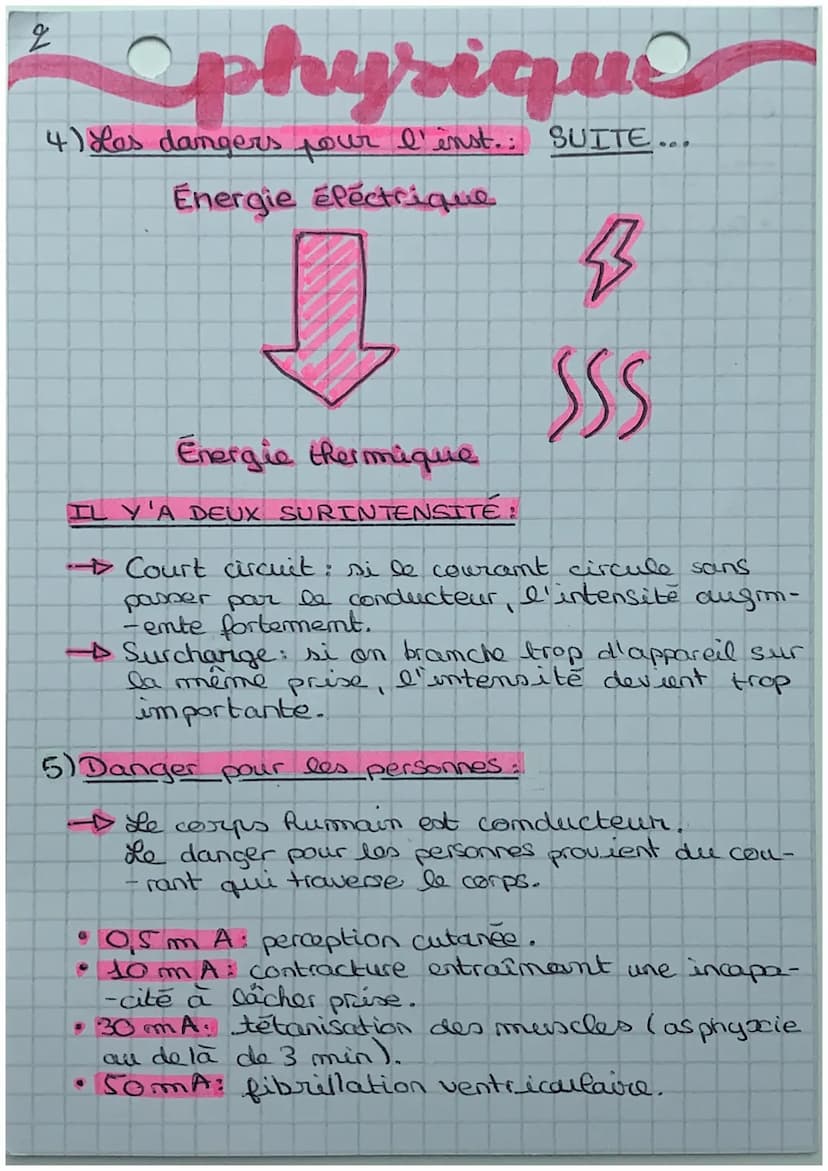 2
physique
4) Les dangers pour l'inst.: SUITE...
Énergie éléctrique
Énergie thermique
IL Y'A DEUX SURINTENSITÉ:
Court circuit: si le courant circule sans
passer par le conducteur, l'intensité augm-
-ente fortement.
Surcharge: si on branche trop d'appareil sur
la même prise, l'intensité devient trop
importante.
5) Danger pour les personnes:
Le corps humain est conducteur.
Le danger pour les personnes provient du cou-
-rant qui traverse le corps.
• 0,5 mA: perception cutanée.
• 10 mA: contracture entraînant une incapa-
-cité à lâcher prise.
• 30 mA: tétanisation des muscles (asphyxie
au delà de 3 min).
• 50 mA: fibrillation ventriculaire.